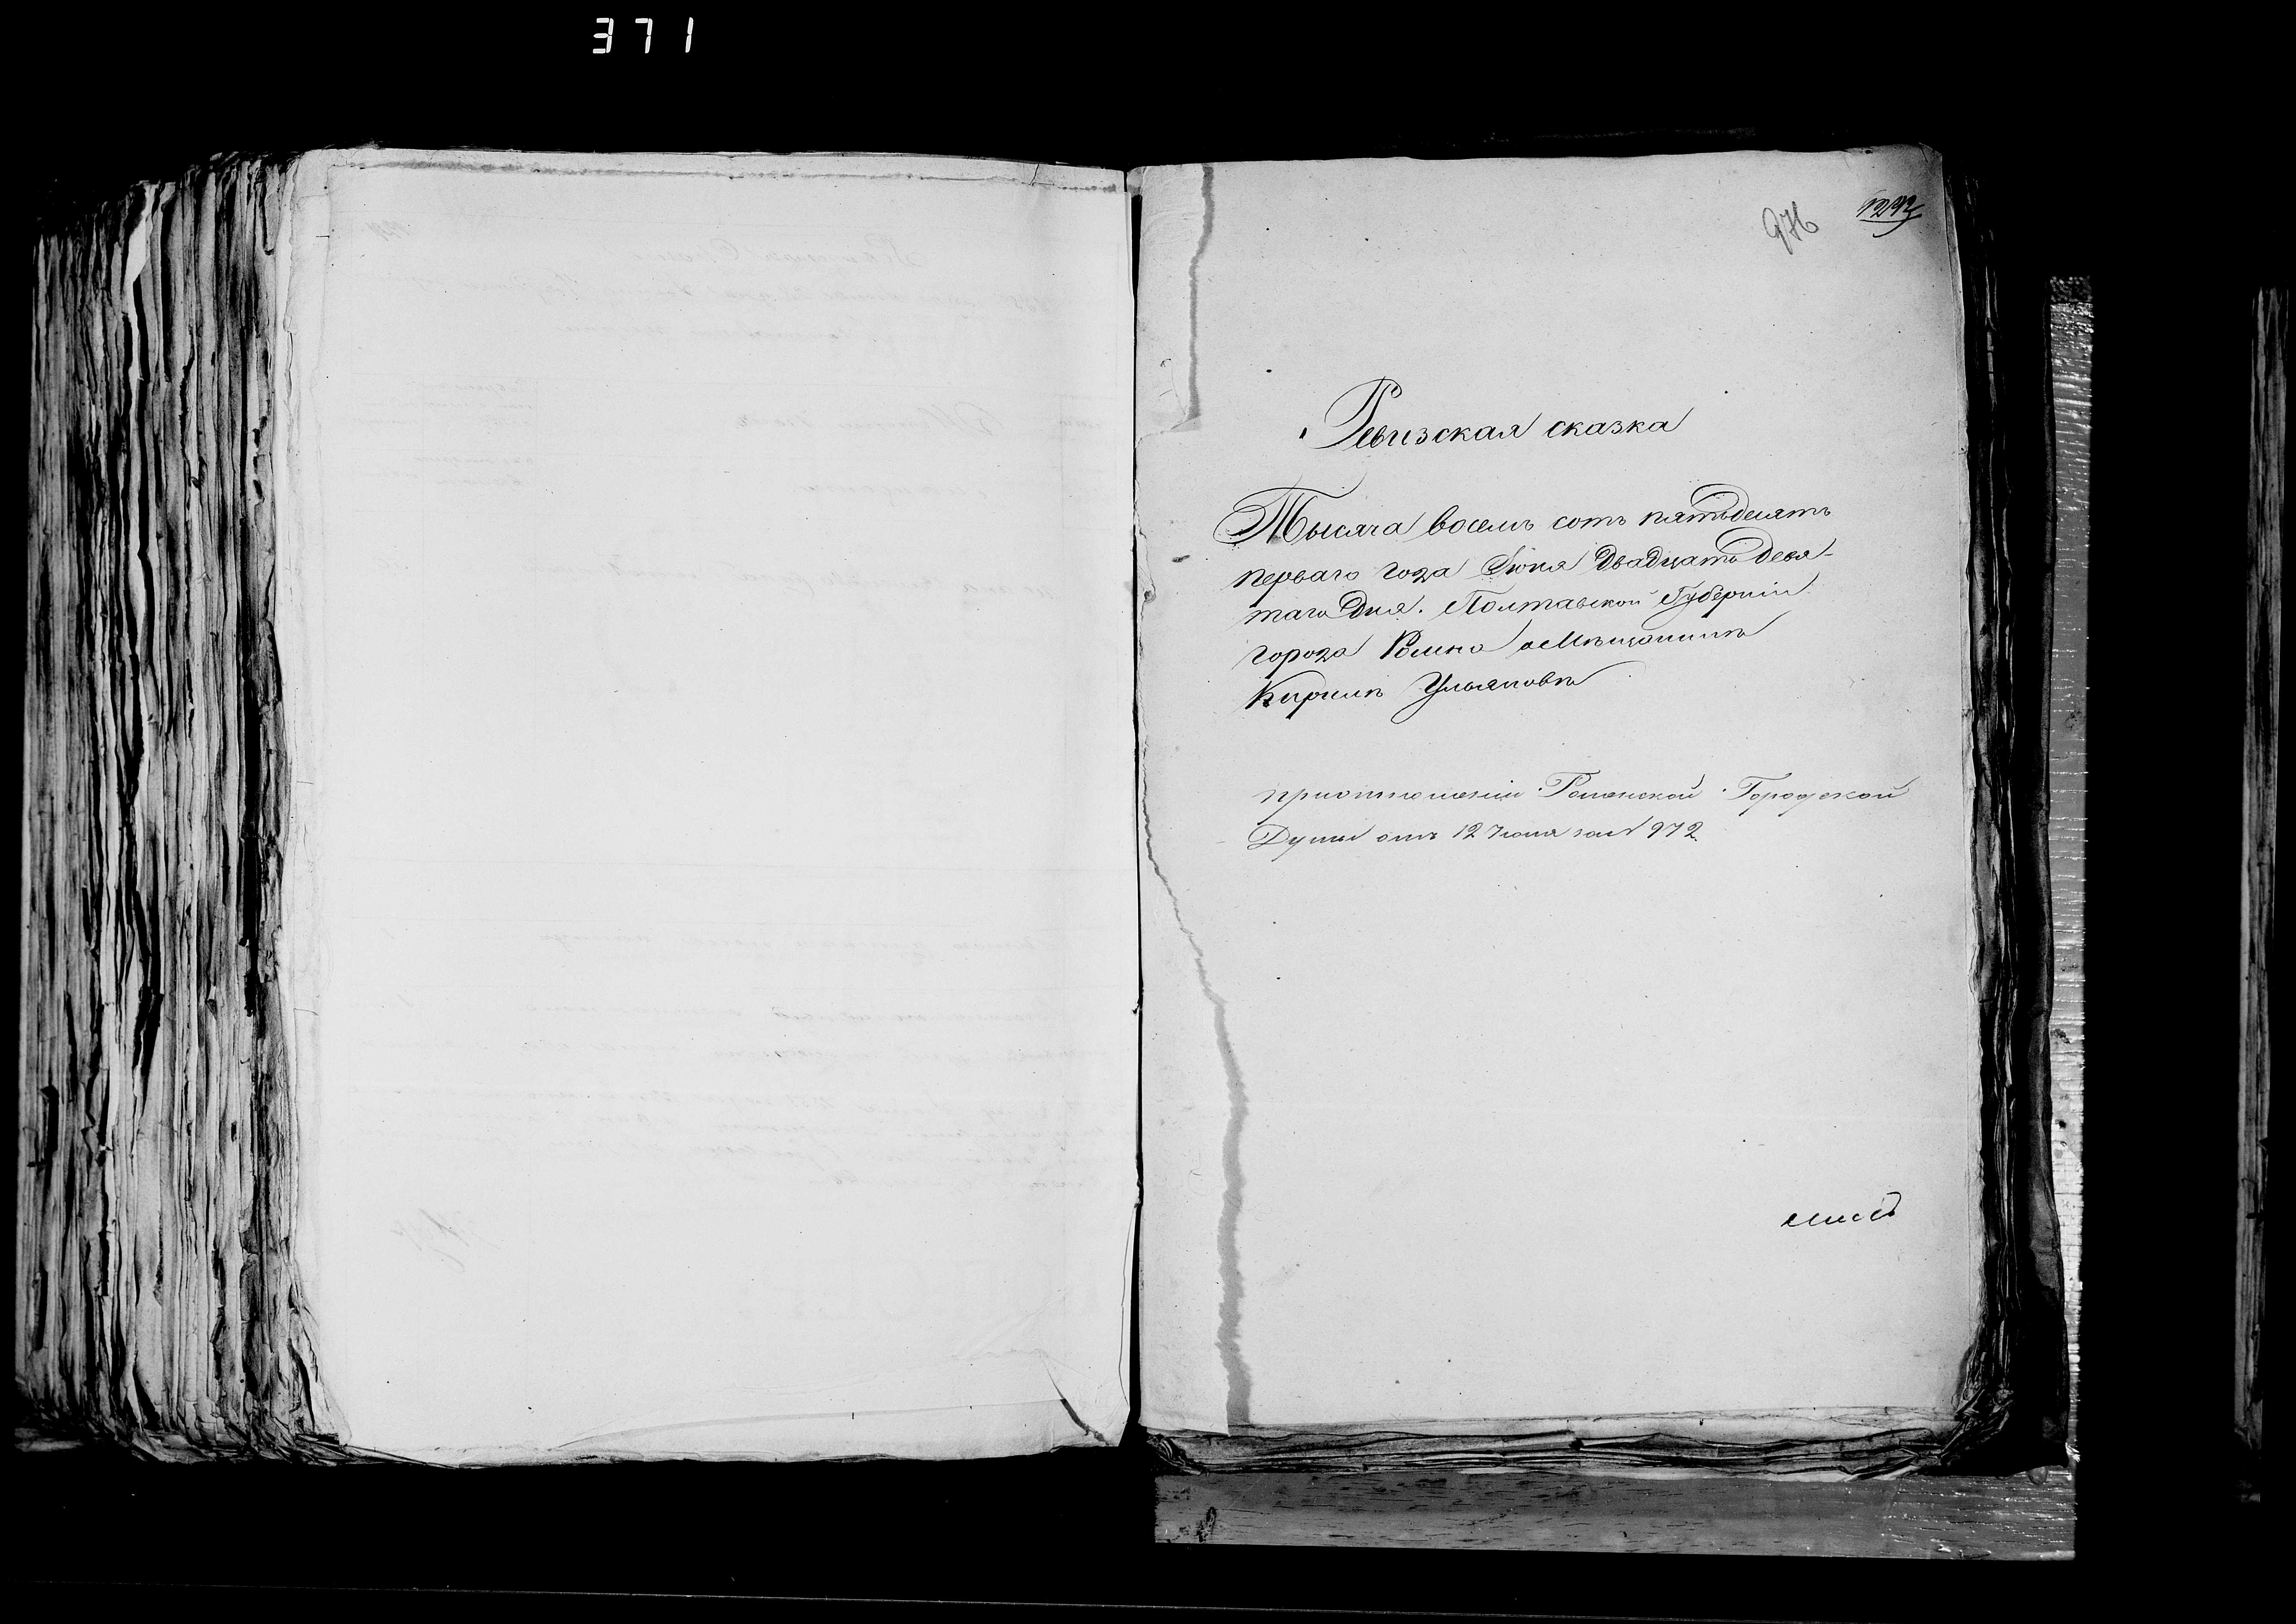 371
976
Ревизская сказка
Тысяча восемь сотъ пятьдесятъ
перваго года Іюня двадцать девя-
таго Дня. Полтавской Губерніи
города Ромна Мѣщанинъ
Кирилъ Ульяновъ
при отношеніи Роменской Городской
Думы отъ 12 Іюня за № 972